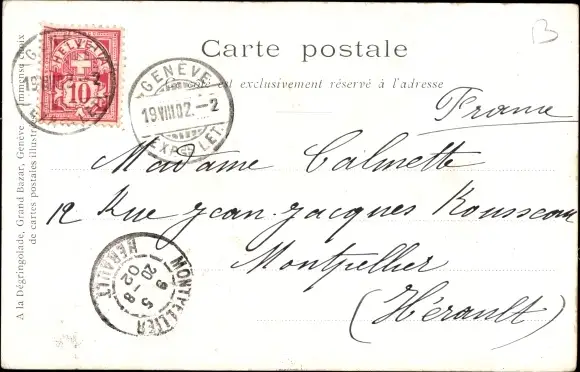 B
Carte postale
est exclusivement réservé à l'adresse
HELVETIA
10
GENÈVE
19 VIII 02. – 2
EXP. LET.
France
Madame Calmette
12 Rue Jean-Jacques Rousseau
Montpellier
(Hérault)
MONTPELLIER
9 5
20 - 8
02
HERAULT
A la Dégringolade, Grand Bazar, Genève. Immense choix
de cartes postales illustr